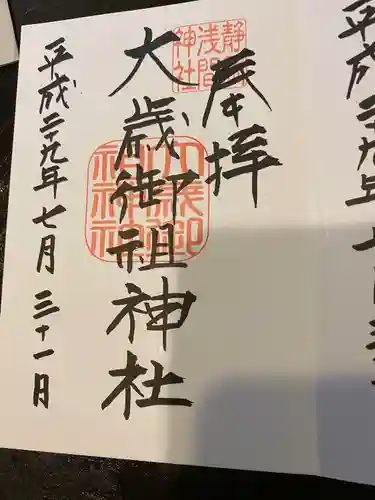 奉拝
静岡
浅間
神社
大歳御祖神社
平成二十九年七月三十一日
平成二十九年七月三